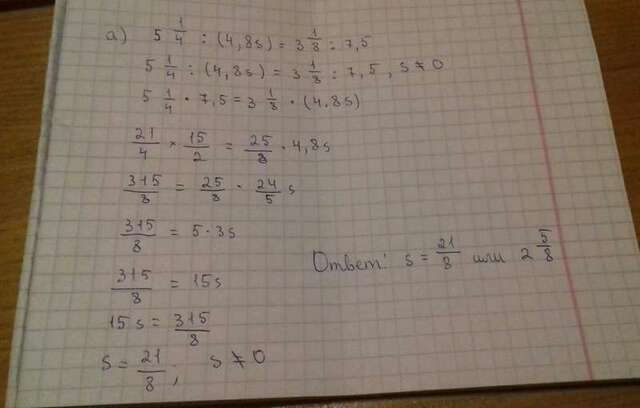 а) 5 1/4 : (4,8s) = 3 1/8 : 7,5
5 1/4 : (4,8s) = 3 1/8 : 7,5, s ≠ 0
5 1/4 · 7,5 = 3 1/8 · (4,8s)
21/4 × 15/2 = 25/8 · 4,8s
315/8 = 25/8 · 24/5 s
315/8 = 5·3s
315/8 = 15s
15s = 315/8
s = 21/8; s ≠ 0
Ответ: s = 21/8 или 2 5/8